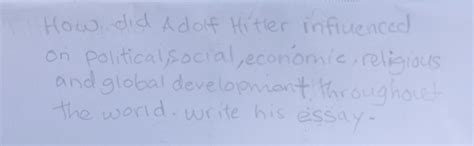 How did Adolf Hitler influenced
on political, social, economic, religious
and global development, throughout
the world. write his essay.